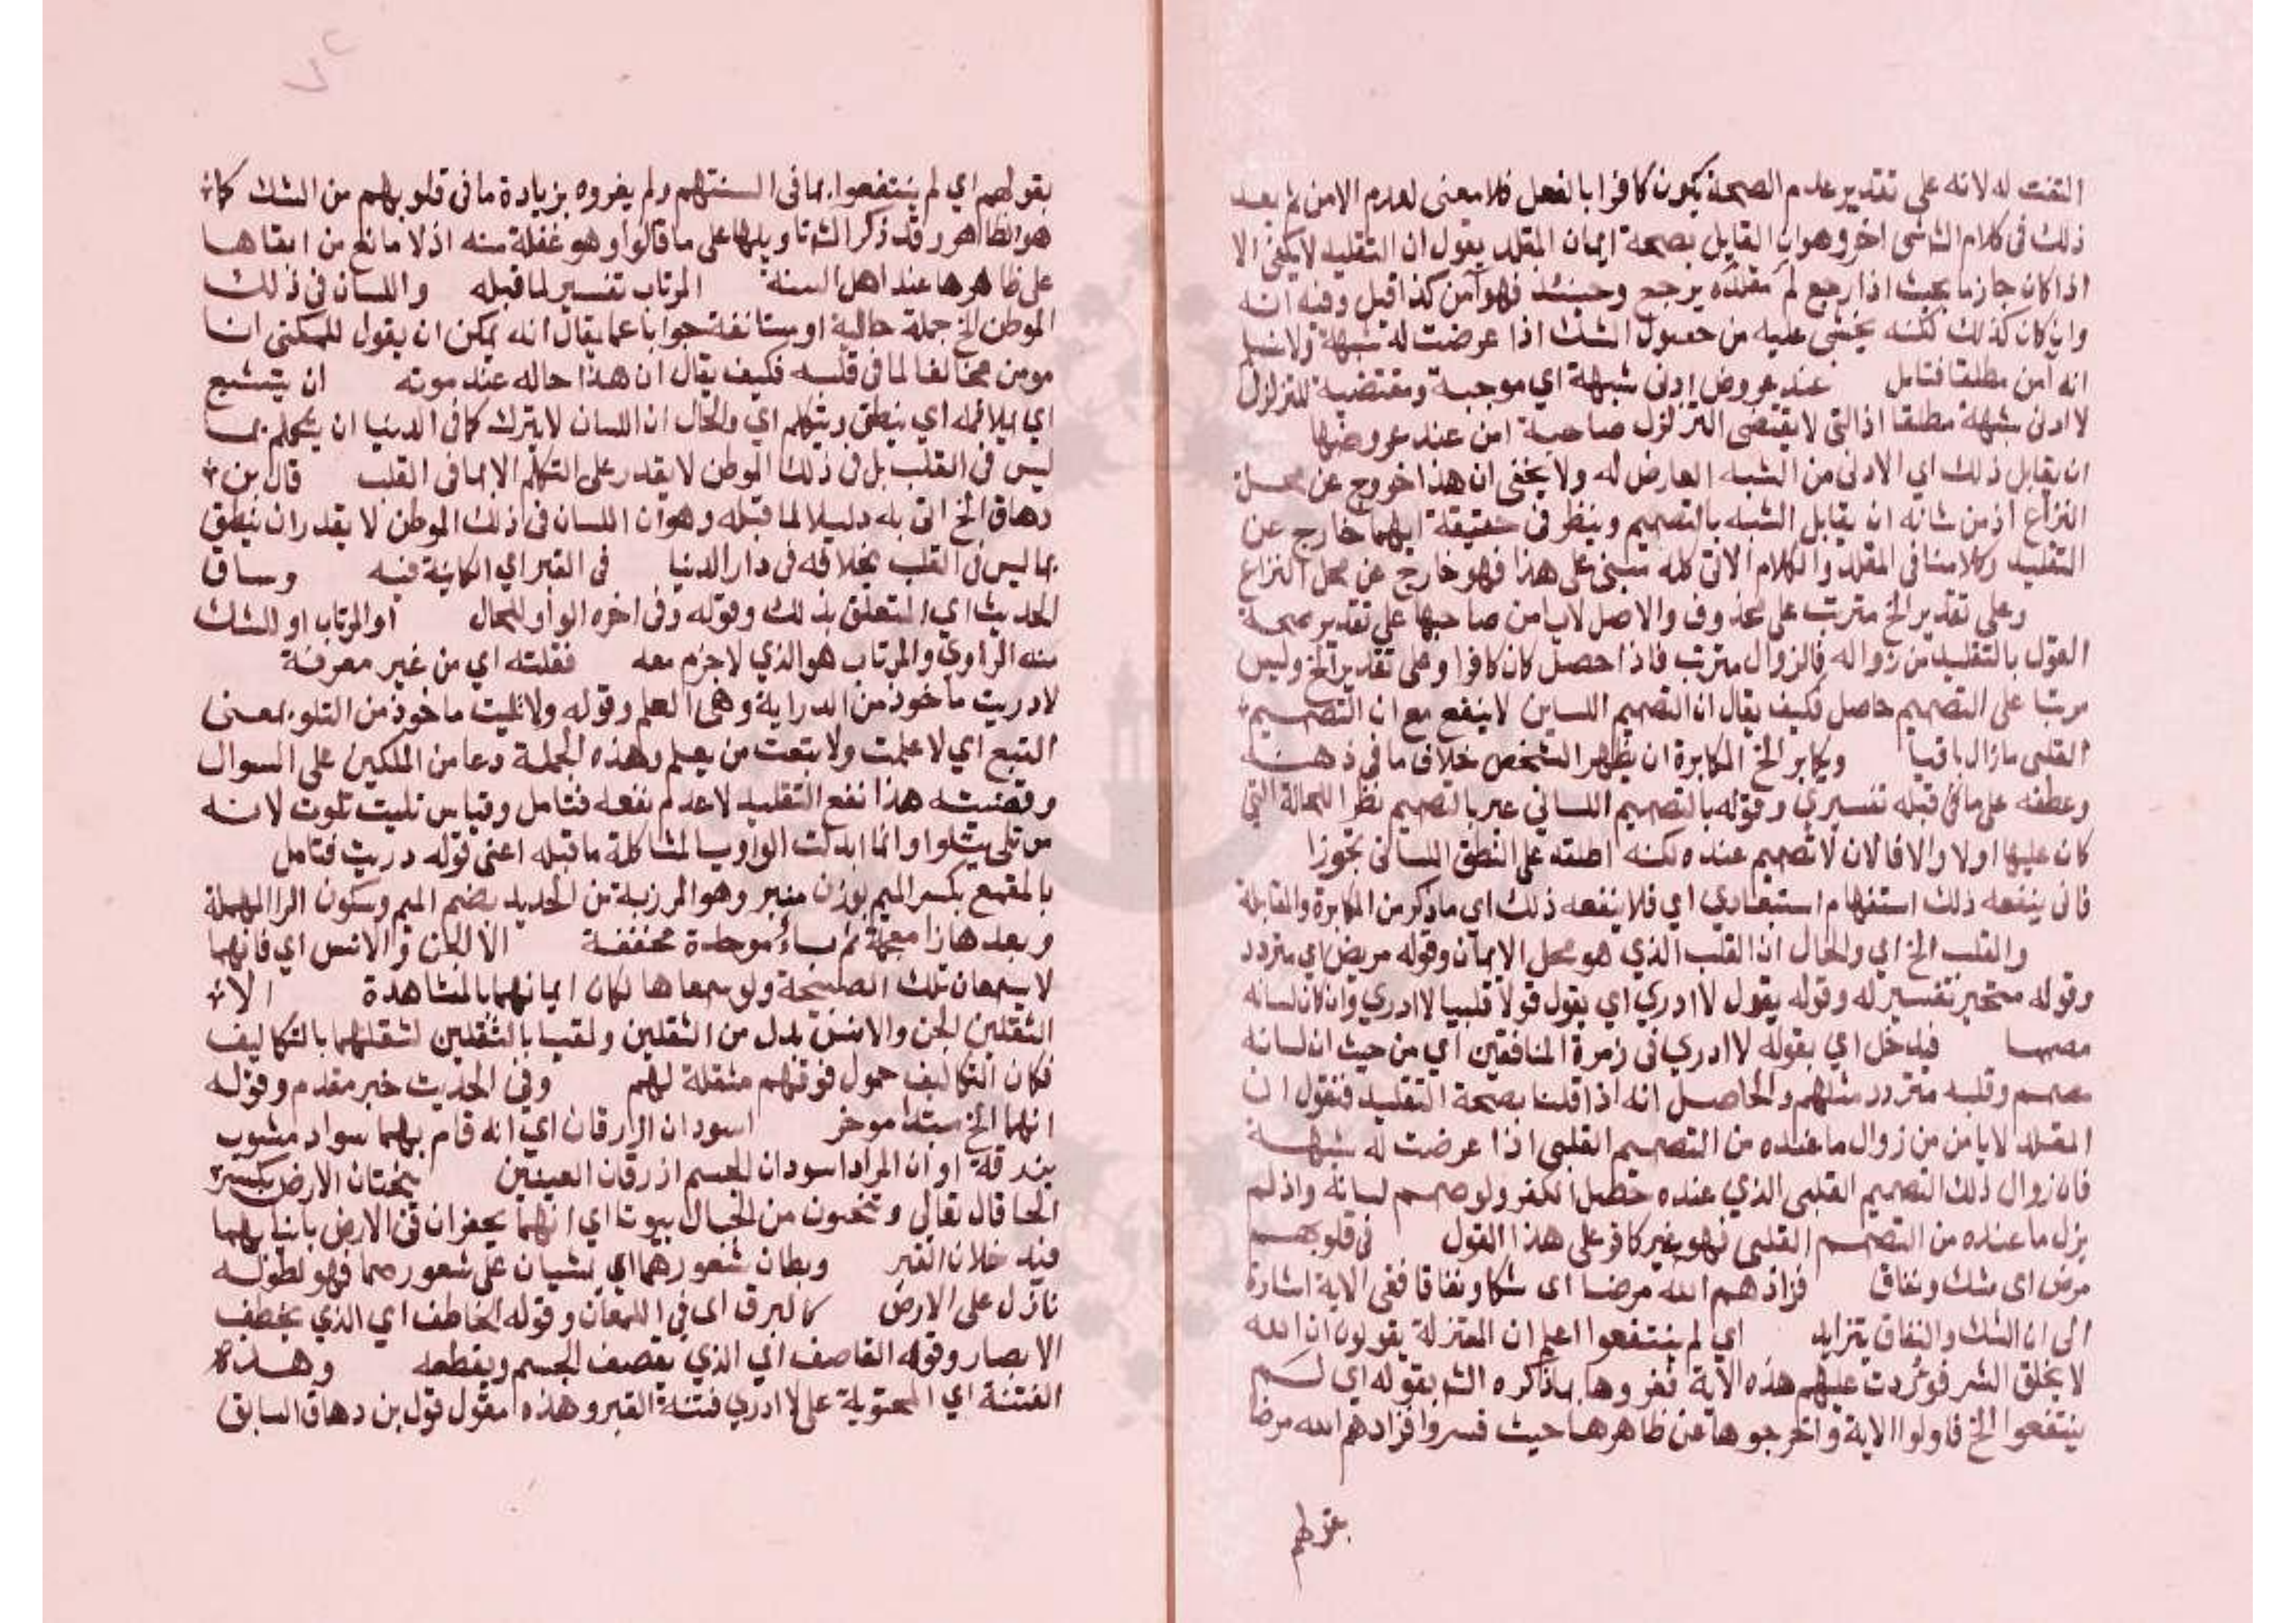 التفت له لانه على تقدير عدم الصحة يكون كافرا بالفعل فلا معنى لعدم الامن ثم بعد
ذلك فى كلام الشا شى اخر وهو ان القايل بصحة ايمان المقلد يقول ان التقليد لا يكفى الا
اذا كان جازما بحيث اذا رجع لم مقلده يرجع وحينئذ فهو آمن كذا قيل وفيه انه
وان كان كذلك لكنه يخشى عليه من حصول الشك اذا عرضت له شبهة ولا نسلم
انه آمن مطلقا فتامل عند عروض ادنى شبهة اي موجبة ومقتضية للتزلزل
لا ادنى شبهة مطلقا اذ التى لا يقتضى التزلزل صاحبه امن عند عروضها
ان يقابل ذلك اي الادنى من الشبه العارض له ولا يخفى ان هذا خروج عن محل
النزاع اذ من شانه ان يقابل الشبه بالتصميم وينظر فى حقيقة ايهما خارج عن
التقليد وكلامنا فى المقلد والكلام الاتى كله مبنى على هذا فهو خارج عن محل النزاع
وعلى تقدير الخ مترتب على محذوف والاصل لا يامن صاحبها على تقدير صحة
القول بالتقليد من زواله فالزوال مترتب فاذا حصل كان كافرا وعلى تقدير الخ وليس
مرتبا على التصميم حاصل فكيف يقال ان التصميم اللسانى لا ينفع مع ان التصميم
القلبى مازال باقيا ويكابر الخ المكابرة ان يظهر الشخص خلاف ما فى ذهنه
وعطفه على ما قبله تفسيري وقوله بالتصميم اللساني عبر بالتصميم نظرا للحالة التي
كان عليها اولا والا فالان لا تصميم عنده لكنه اطلقه على النطق اللسانى تجوزا
فانى ينفعه ذلك استفهام استبعادي اي فلا ينفعه ذلك اي ما ذكر من المكابرة والمقابلة
والقلب الخ اي والحال ان القلب الذي هو محل الايمان وقوله مريض اي متردد
وقوله متحير تفسير له وقوله يقول لا ادري اي يقول قولا قلبيا لا ادري وان كان لسانه
مصمما فيدخل اي بقوله لا ادري فى زمرة المنافقين اي من حيث ان لسانه
مصمم وقلبه متردد مثلهم والحاصل انه اذا قلنا بصحة التقليد فنقول ان
المقلد لا يامن من زوال ما عنده من التصميم القلبى اذا عرضت له شبهة
فان زوال ذلك التصميم القلبى الذي عنده حصل الكفر ولو صمم لسانه واذ لم
يزل ما عنده من التصمم القلبى فهو غير كافر على هذا القول فى قلوبهم
مرض اى شك ونفاق فزادهم الله مرضا اى شكا ونفاقا ففى الاية اشارة
الى ان الشك والنفاق يتزايد اي لم ينتفعوا اعلم ان المعتزلة يقولون ان الله
لا يخلق الشر فوردت عليهم هذه الاية ففروها بما ذكره الش بقوله اي لم
ينتفعوا الخ فاولوا الاية واخرجوها عن ظاهرها حيث فسروا فزادهم الله مرضا
بقولهم
بقولهم اي لم ينتفعوا بما فى السنتهم ولم يغروه بزيادة ما فى قلوبهم من الشك كان
هو الظاهر وقد ذكر الش تاويلها على ما قالوا وهو غفلة منه اذ لا مانع من ابقاها
على ظاهرها عند اهل السنة المرتاب تفسير لما قبله واللسان فى ذلك
الموطن الخ جملة حالية او مستانفة جوابا عما يقال انه يمكن ان يقول للملكين انا
مومن مخالفا لما فى قلبه فكيف يقال ان هذا حاله عند موته ان يتشبع
اي يملا فمه اي ينطق ويتكلم اي والحال ان اللسان لا يترك كما فى الدنيا ان يتكلم بما
ليس فى القلب بل فى ذلك الموطن لا يقدر على التكلم الا بما فى القلب قال بن
دهاق الخ اتى به دليلا لما قبله وهو ان اللسان فى ذلك الموطن لا يقدر ان ينطق
بما ليس فى القلب بخلافه فى دار الدنيا فى القبر اي الكاينة فيه وساق
الحديث اي المتعلق بذلك وقوله وفى اخره الواو للحال او المرتاب او للشك
منه الراوي والمرتاب هو الذي لا جزم معه فقلته اي من غير معرفة
لا دريت ماخوذ من الدراية وهى العلم وقوله ولا تليت ماخوذ من التلو بمعنى
التبع اي لا علمت ولا تبعت من يعلم وهذه الجملة دعا من الملكين على السوال
وقضيته هذا نفع التقليد لا عدم نفعه فتامل وقياس تليت تلوت لانه
من تلى يتلوا وانما ابدلت الواو يا لمشاكلة ما قبله اعنى قوله دريت فتامل
بالمقمع بكسر الميم بوزن منبر وهو المرزبة من الحديد بضم الميم وسكون الرا المهملة
وبعدها زا معجمة ثم باء موحدة مخففة الا الجن والانس اي فانهما
لا يسمعان تلك الصيحة ولو سمعاها لكان ايمانهما بالمشاهدة الا
الثقلين الجن والانس بدل من الثقلين ولقبا بالثقلين لثقلهما بالتكاليف
فكان التكاليف حمول فوقهم مثقلة لهم وفى الحديث خبر مقدم وقوله
انهما الخ مبتدا موخر اسودان ازرقان اي انه قام بهما سواد مشوب
بزرقة او ان المراد اسودان الجسم ازرقان العينين ينحتان الارض بكسر
الحا قال تعالى وتنحتون من الجبال بيوتا اي انهما يحفران فى الارض بانيابهما
فيدخلان القبر ويطان شعورهما اي يمشيان على شعورهما فهو لطوله
نازل على الارض كالبرق اى فى اللمعان وقوله الخاطف اي الذي يخطف
الابصار وقوله القاصف اي الذي يقصف الجسم ويقطعه وهذه
الفتنة اي المحتوية على لا ادري فتنة القبر وهذه مقول قول بن دهاق السابق